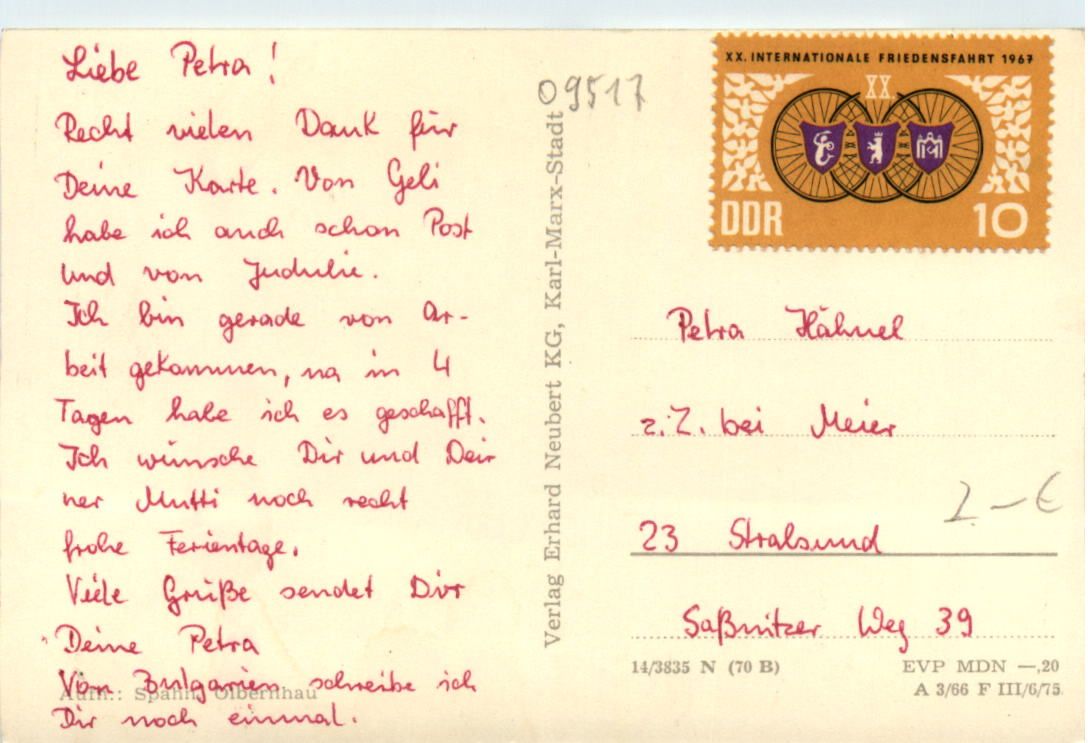 Liebe Petra!
Recht vielen Dank für
Deine Karte. Von Geli
habe ich auch schon Post
und von Judulie.
Ich bin gerade von Ar-
beit gekommen, na in 4
Tagen habe ich es geschafft.
Ich wünsche Dir und Dei
ner Mutti noch recht
frohe Ferientage.
Viele Grüße sendet Dir
Deine Petra
Von Bulgarien schreibe ich
Dir noch einmal.
Aufn.: Spahn, Olbernhau
09517
Verlag Erhard Neubert KG, Karl-Marx-Stadt
XX. INTERNATIONALE FRIEDENSFAHRT 1967
XX.
DDR 10
Petra Hähnel
z.Z. bei Meier
2.-€
23 Stralsund
Saßnitzer Weg 39
14/3835 N (70 B)
EVP MDN —,20
A 3/66 F III/6/75